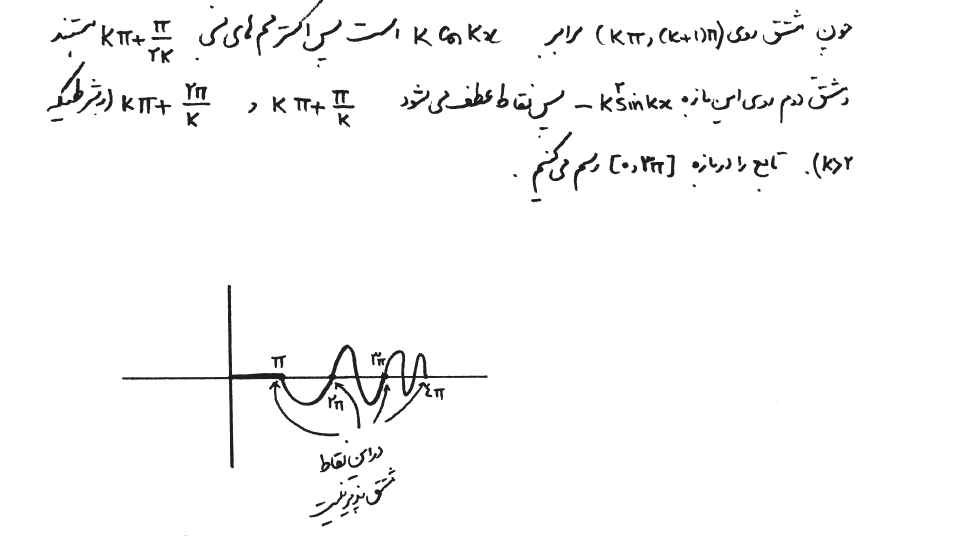 چون مشتق روی (kπ, (k+1)π) برابر k cos kx است پس اکسترمم های نسبی kπ + π/۲k هستند
و مشتق دوم روی این بازه -k² sin kx پس نقاط عطف می شود kπ + π/k و kπ + ۲π/k (بشرطیکه
k>۲). تابع را در بازه [۰,۳π] رسم می کنیم.
π
۳π
۲π
٤π
در این نقاط
مشتق پذیر نیست